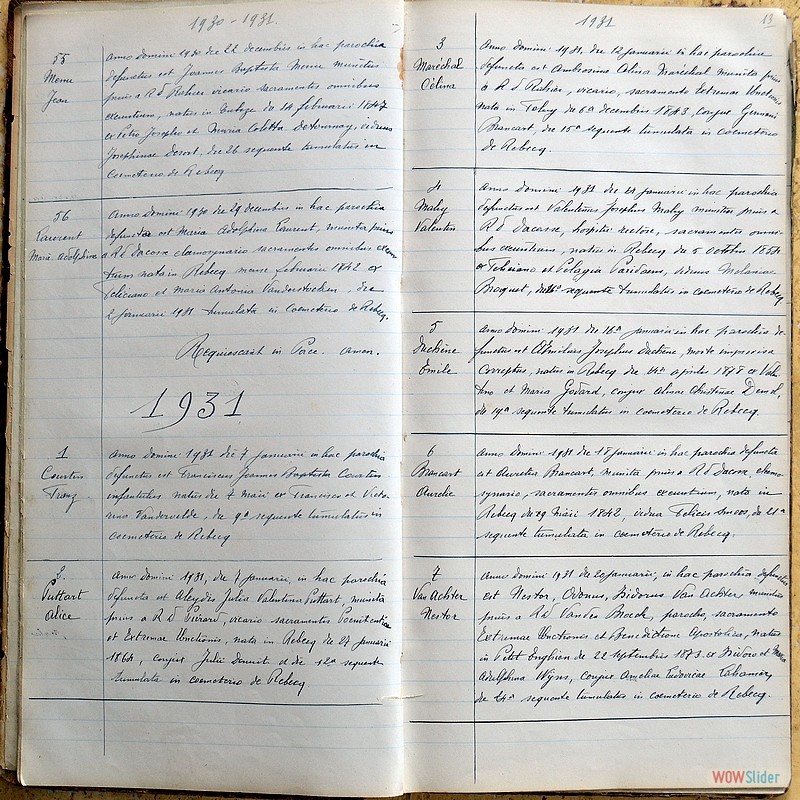 1930 - 1931.
55
Meme
Jean
Anno Domini 1930 die 22 decembris in hac parochia
defunctus est Joannes Baptista Meme munitus
prius a Rd Rahier vicario sacramentis omnibus
exeuntium, natus in die 14 februarii 1847
ex Petro Josepho et Maria Coletta Detournay, viduus
Josephinae Desort, die 26 sequente tumulatus in
coemeterio de Rebecq
56
Laurent
Maria Adolphina
Anno Domini 1930 die 29 decembris in hac parochia
defuncta est Maria Adolphina Laurent, munita prius
a Rd Dacosse eleemosynario sacramentis omnibus exeun
tium nata in Rebecq mense februarii 1842 ex
Feliciano et Maria Antonia Vanderstocken, die
2 januarii 1931 tumulata in coemeterio de Rebecq.
Requiescant in Pace. Amen.
1931
1
Courtin
Franz
Anno Domini 1931 die 7 januarii in hac parochia
defunctus est Franciscus Joannes Baptista Courtin
infantulus natus die 7 maii ex Francisco et Victo
rina Vandervelde, die 9a sequente tumulatus in
coemeterio de Rebecq
2.
Puttart
Alice
Anno Domini 1931, die 7 januarii, in hac parochia
defuncta est Alegidis Julia Valentina Puttart, munita
prius a Rd Pierard, vicario sacramentis Poenitentiae
et Extremae Unctionis, nata in Rebecq die 27 januarii
1864, conjux Julii et die 12a sequente
tumulata in coemeterio de Rebecq.
1931
13
3
Maréchal
Célina
Anno Domini 1931, die 12 januarii in hac parochia
defuncta est Ambrosina Alina Maréchal munita prius
a Rd Rahier, vicario, sacramento Extremae Unctionis
nata in die 6a decembris 1843, conjux Germani
Brancart, die 15a sequente tumulata in coemeterio
de Rebecq.
4
Mahy
Valentin
Anno Domini 1931 die 14 januarii in hac parochia
defunctus est Valentinus Josephus Mahy munitus prius a
Rd Dacosse, hospitii rectore, sacramentis omni-
bus exeuntium, natus in Rebecq die 5 octobris 1854
ex et Pelagia Paridaens, viduus Melaniae
Bacquet, die sequente tumulatus in coemeterio de Rebecq
5
Duchêne
Emile
Anno Domini 1931 die 16a januarii in hac parochia de-
functus est Aemilius Josephus Duchêne, morte improvisa
correptus, natus in Rebecq die 14a aprilis 1878 ex Valen
tino et Maria Godard, conjux Almae Christinae
die 19a sequente tumulatus in coemeterio de Rebecq.
6
Brancart
Aurelie
Anno Domini 1931 die 18 januarii in hac parochia defuncta
est Aurelia Brancart, munita prius a Rd Dacosse, eleemo
synario, sacramentis omnibus exeuntium, nata in
Rebecq die 29 maii 1842, vidua Felicis die 21a
sequente tumulata in coemeterio de Rebecq.
7
Van Achter
Nestor
Anno Domini 1931 die 20 januarii, in hac parochia defunctus
est Nestor, Odonus, Isidorus Van Achter munitus
prius a Rd Vanden Broeck, parocho, sacramento
Extremae Unctionis et Benedictione Apostolica, natus
in Petit Enghien die 22 septembris 1873 ex Isidoro et Maria
Adelphina Wyns, conjux Ameliae Ludovicae
die 24a sequente tumulatus in coemeterio de Rebecq.
WOWSlider